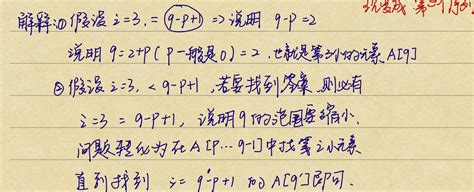 换成 第 i 个 序列
解释: ① 假设 i=3, = (q-p+1) => 说明 q-p=2
说明 q=2+p (p一般是0)=2. 也就是第3小的元素 A[q]
② 假设 i=3, < q-p+1, 若要找到答案, 则必有
i=3 = q-p+1, 说明 q 的范围要缩小.
问题转化为在 A[p…q-1] 中找第 i 小元素
直到找到 i= q'-p+1 的 A[q'] 即可.